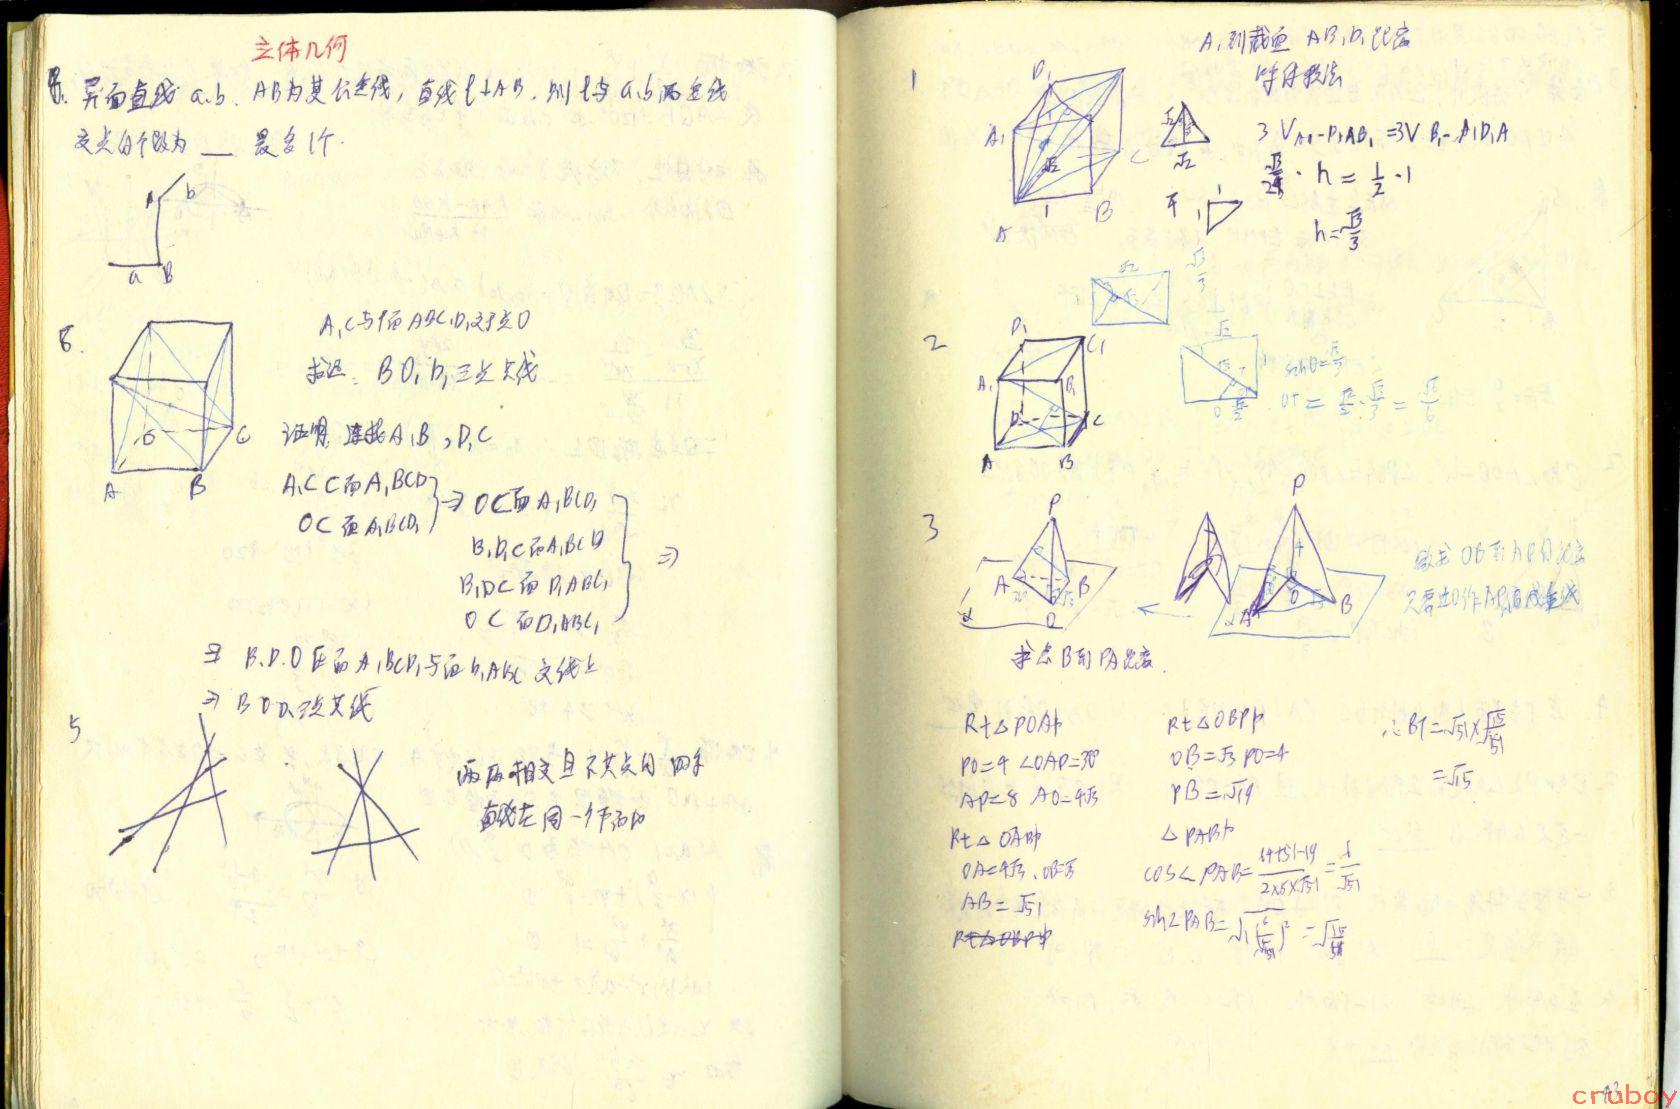 立体几何
异面直线 a.b. AB为其公垂线，直线l⊥AB. 则l与a.b两直线
交点的个数为 __ 最多1个.
A
b
a
B
6.
A₁C与面ABC₁D₁交于点O
求证: B O, D₁三点共线
C
A
B
证明 连接A₁B, D₁C
A₁C⊂面A₁BCD₁
O⊂面A₁BCD₁
⇒ O⊂面A₁BCD₁
B₁D₁⊂面A₁BCD
B₁D⊂面D₁ABC₁
O⊂面D₁ABC₁
⇒
⇒ B.D.O在面A₁BCD₁与面D₁ABC₁交线上
⇒ B O D₁三点共线
5
两两相交且不共点的四条
直线在同一个平面内
1
A₁到截面 AB₁D₁距离
等体积法
D₁
A₁
C
√2
1
A
B
3V A₁-D₁AB₁ =3V B₁-A₁D₁A
· h = 1/2 · 1
h=√3/3
2
D₁
C₁
A₁
B₁
D
C
A
B
√2
sinθ=√3/3
OT = √2/2 · √3/3 = √6/6
3
P
A
B
O
α
P
4
O
B
A
α
求点B到PA距离.
Rt△POA中
PO=4 ∠OAP=30°
AP=8 AO=4√3
Rt△OAB中
OA=4√3, OB=√3
AB=√51
Rt△OBP中
Rt△OBP中
OB=√3 PO=4
PB=√19
△PAB中
cos∠PAB= 64+51-19 / 2×8×√51 = 6/√51
sin∠PAB= √1-(6/√51)² = √15/51
∴BT=√51×√15/51
=√15
A3
cruboy